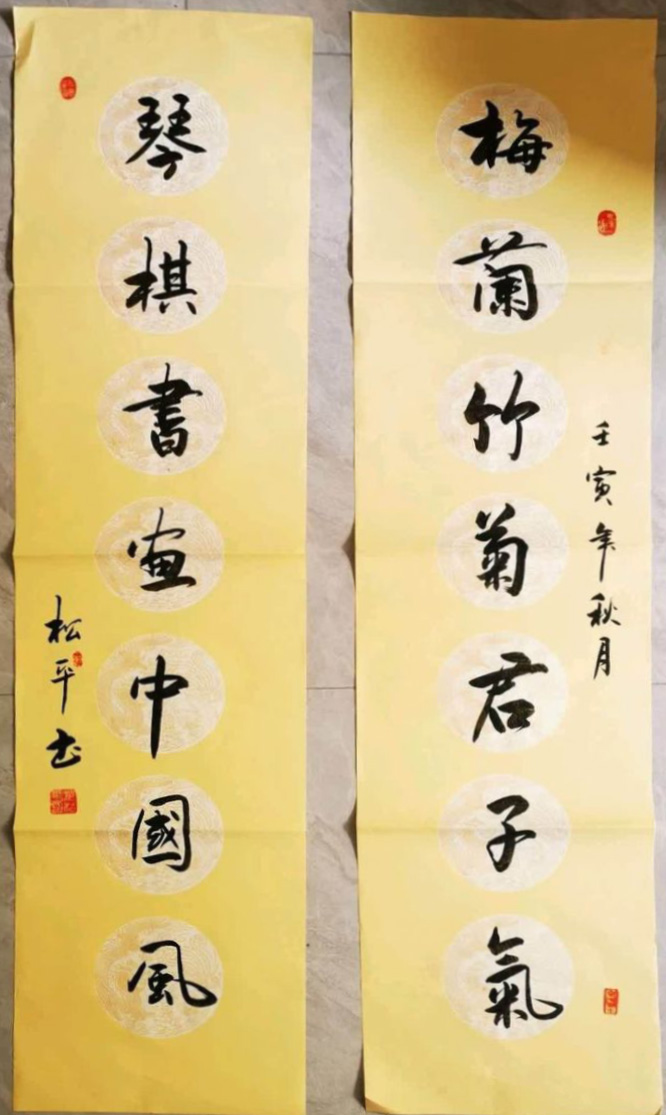 梅蘭竹菊君子氣
壬寅年秋月
琴棋書畫中國風
松平书